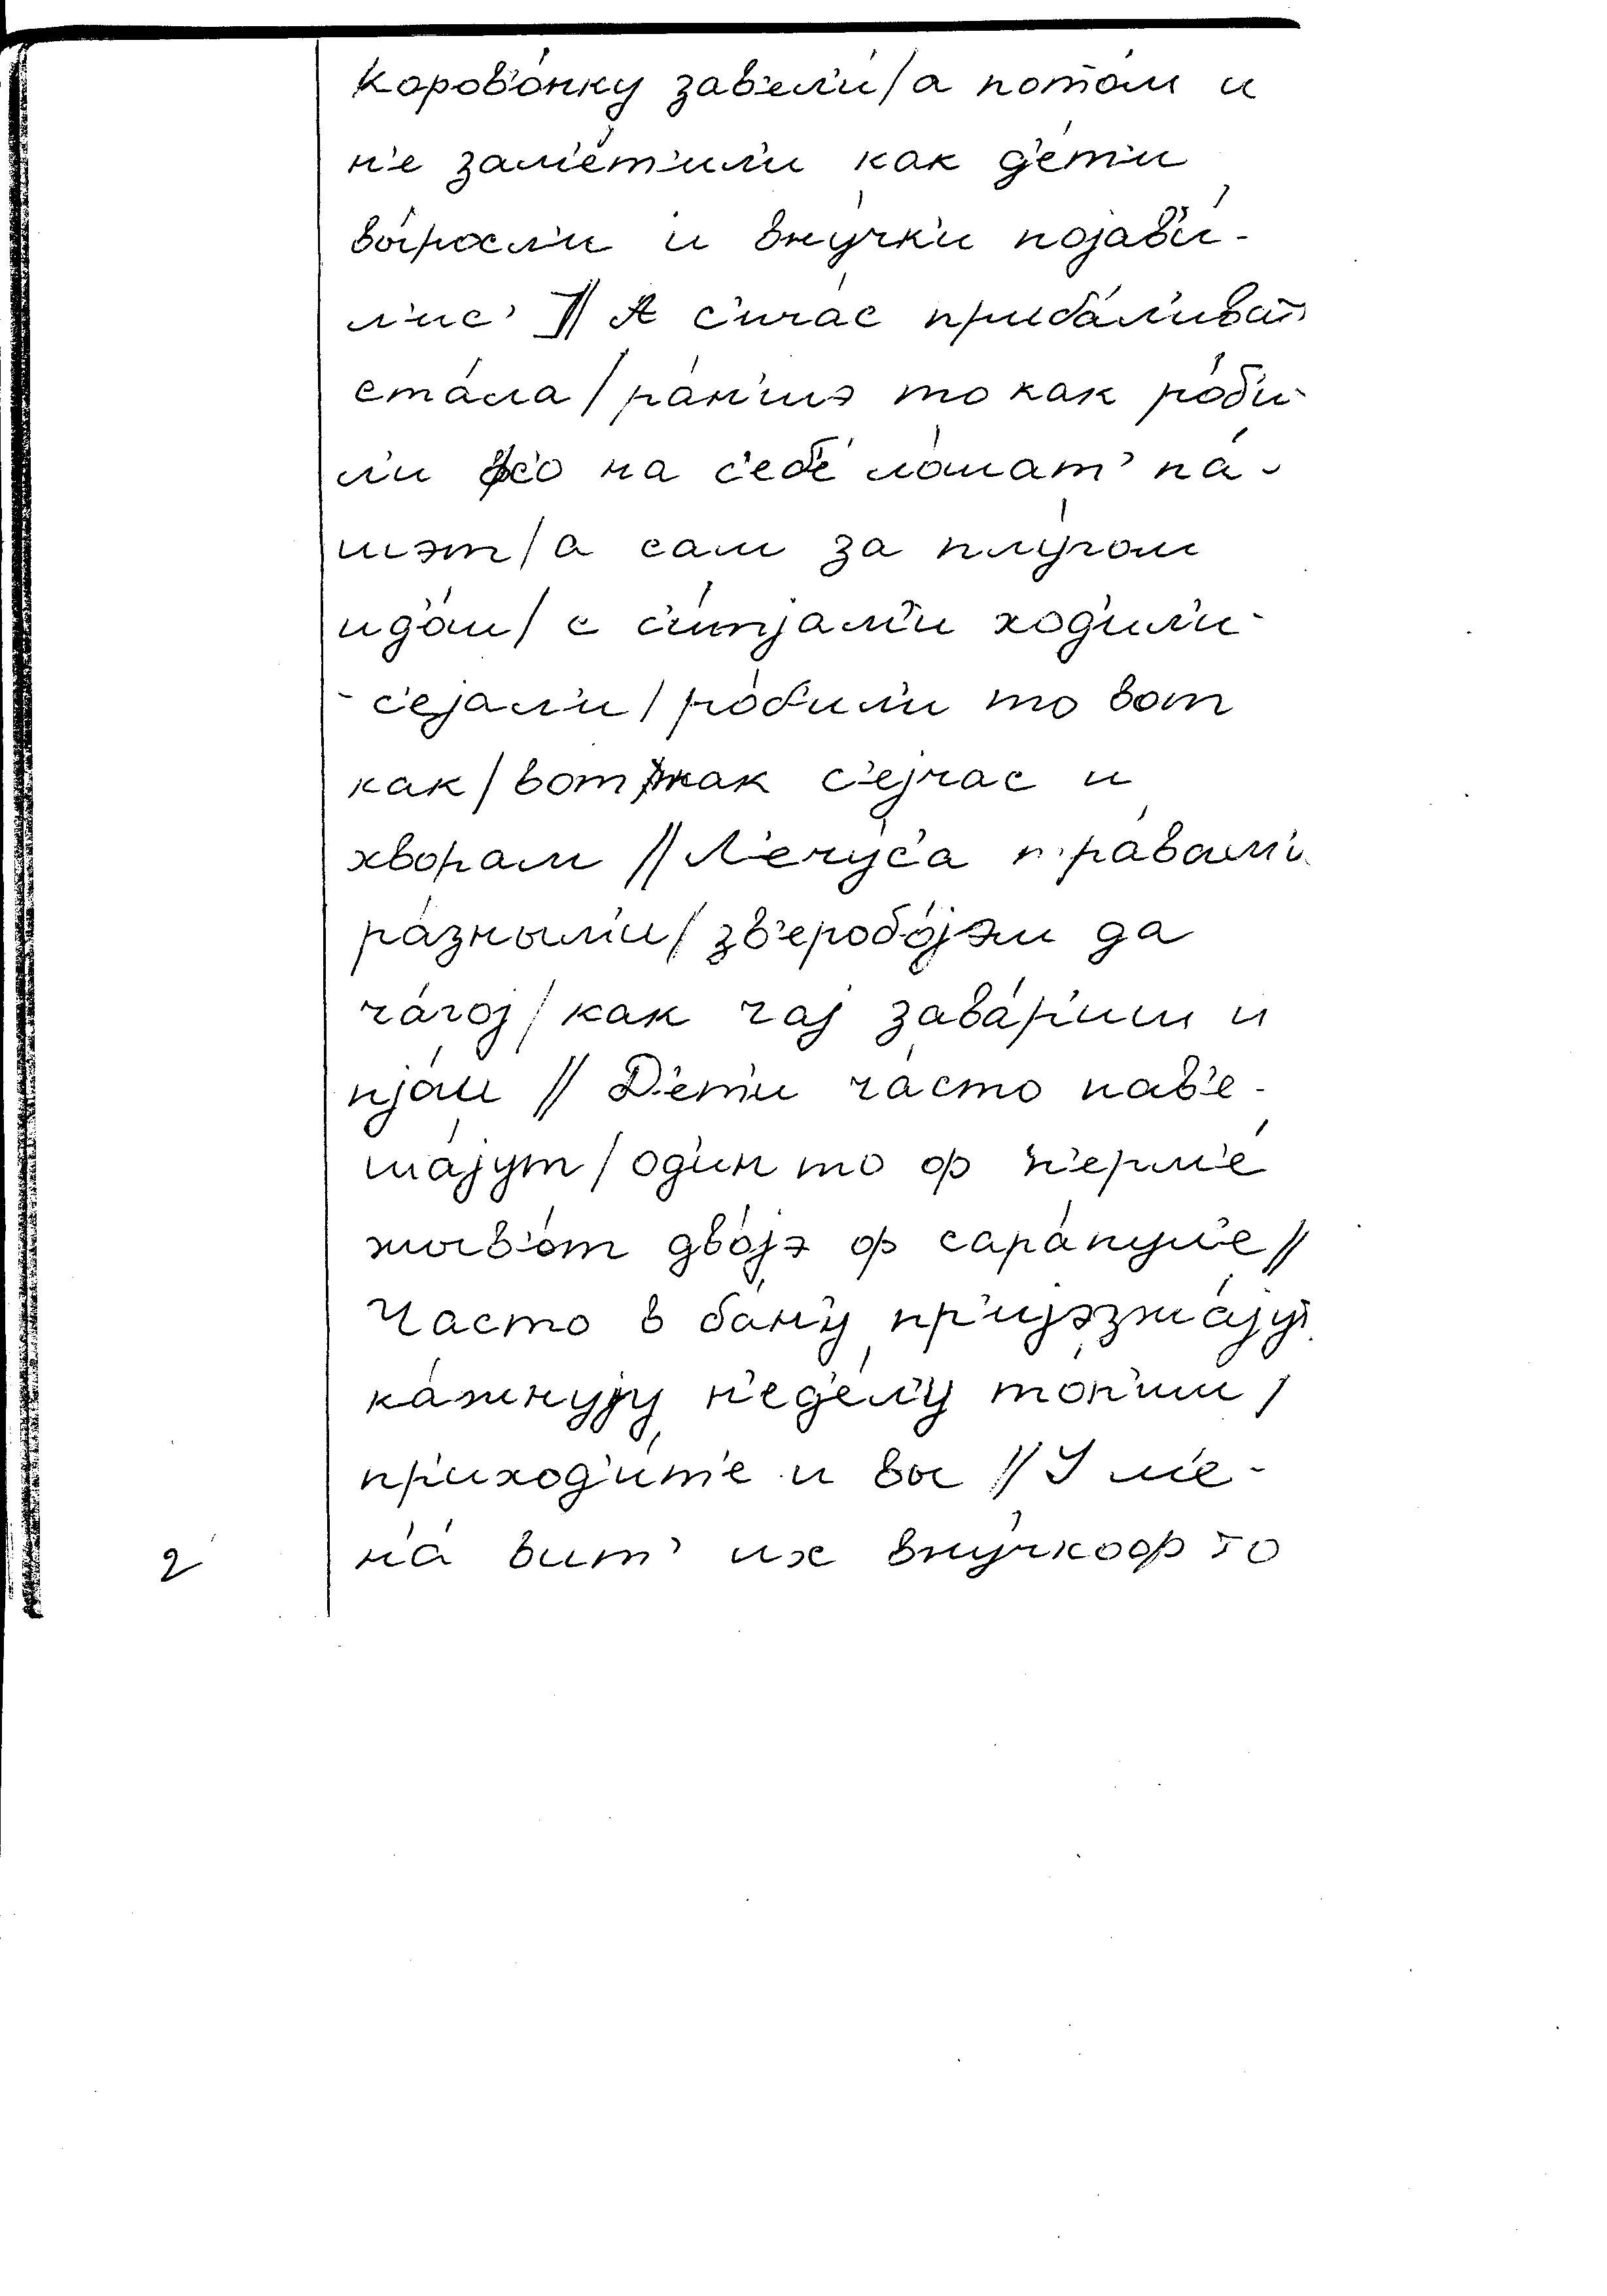 коров'о́нку зав'ел'и́/а пото́м и
н'е зам'е́т'ил'и как д'е́т'и
вы́росл'и и вну́чк'и појав'и́-
л'ис' ]// А с'ича́с пр'иба́л'иват'
ста́ла/ра́н'шэ то как ро́би-
ли фс'о на с'еб'е́ ло́шат' па́-
шэт/а сам за плу́гом
ид'о́ш/с с'и́тјам'и ход'ил'и-
-с'ејал'и/ро́бил'и то вот
как/вот как с'ејчас и
хворам // Л'ечу́с'а тра́вам'и
ра́зным'и/зв'еробо́јэм да
ча́гој/как чај зава́р'иш и
пјо́ш // Д'е́т'и ча́сто нав'е-
ша́јут/од'ин то ф п'ерм'е́
жыв'о́т дво́јэ ф сара́пул'е //
Часто в ба́н'у пр'ијэзжа́јут
ка́жнују н'ед'е́л'у то́п'им/
пр'иход'и́т'е и вы // У м'е-
н'а́ вит' их вну́чкоф то
2